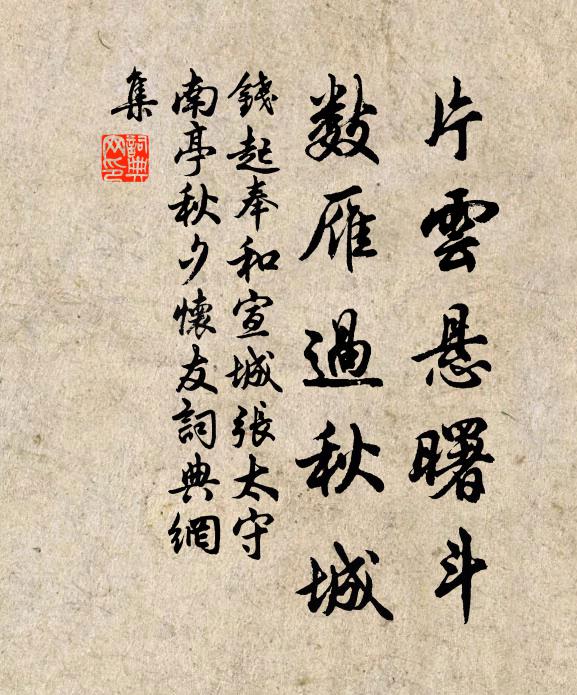 片雲悬曙斗
数雁過秋城
錢起奉和宣城張太守
南亭秋夕懷友詞典網
集
詞典
网印